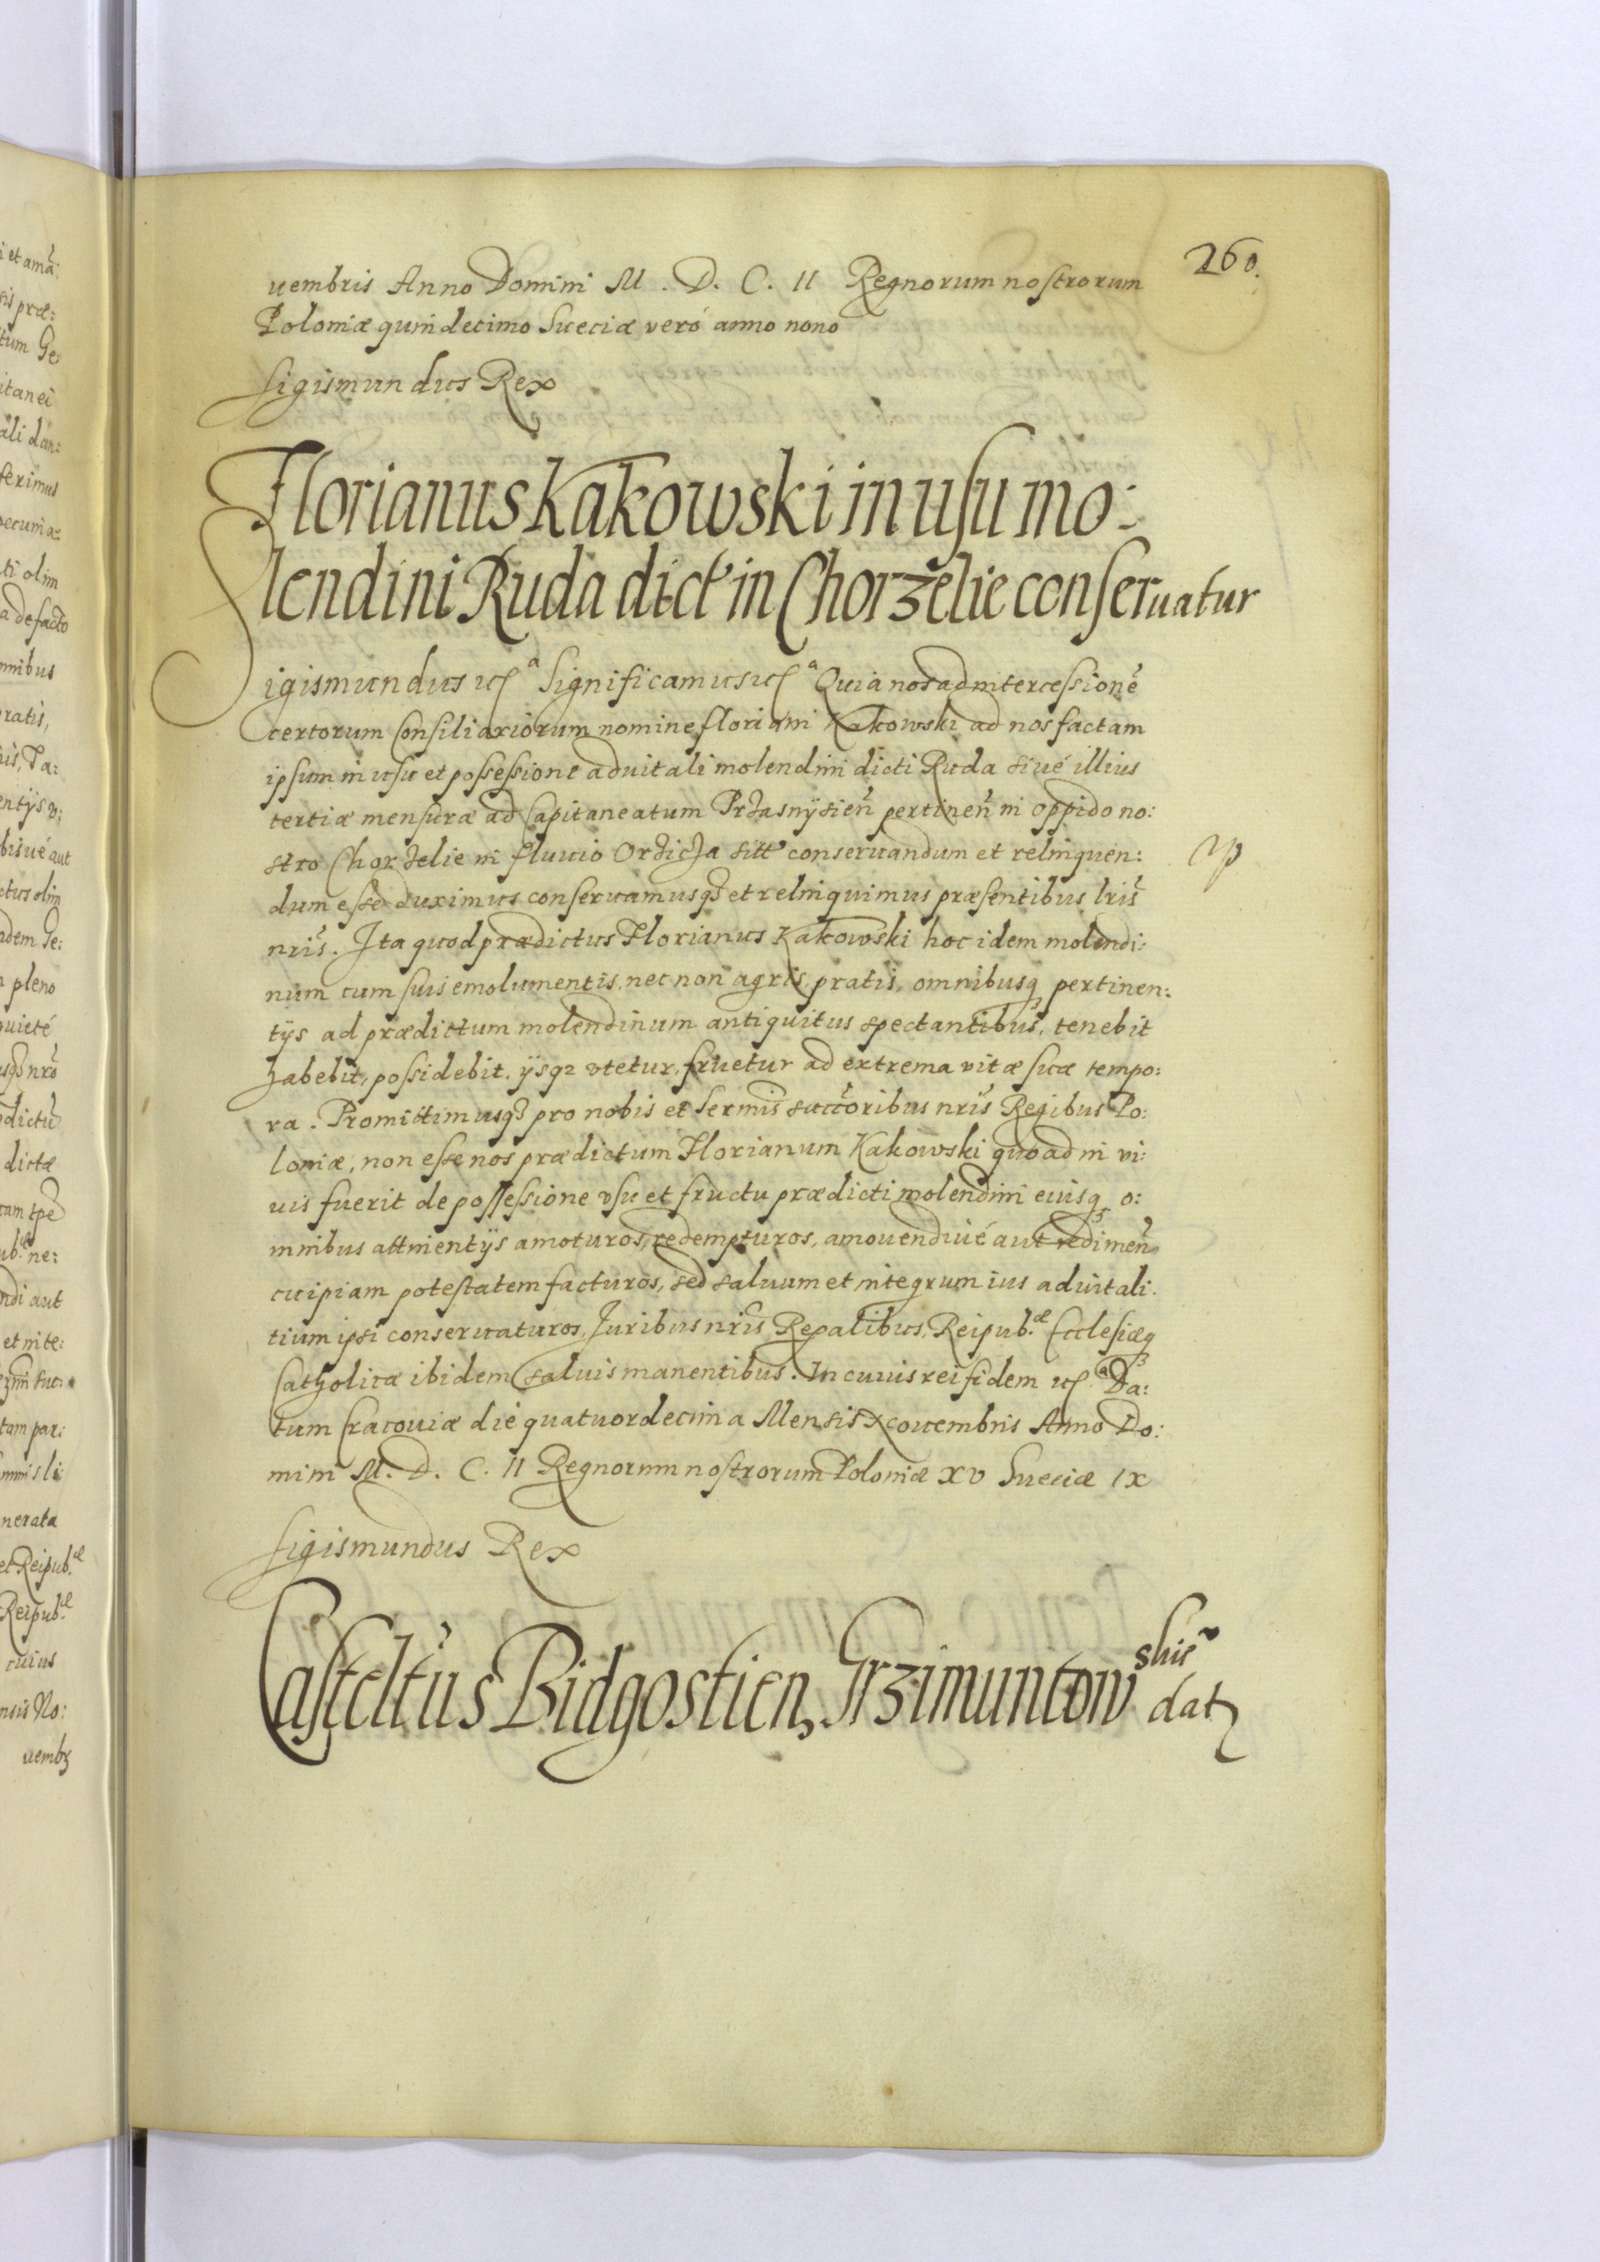 260.
uembris Anno Domini M. D. C. II Regnorum nostrorum
Poloniæ quindecimo Sueciæ veró anno nono
Sigismundus Rex
Florianus Kakowski in usu mo:
lendini Ruda dict' in Chorzelie conseruatur
Sigismundus etc<sup>a</sup> Significamus etc<sup>a</sup> Quia nos ad intercessionẽ
certorum Consiliariorum nomine floriani Kakowski ad nos factam
ipsum in usu et possessione aduitali molendini dicti Ruda siué illius
tertiæ mensuræ ad Capitaneatum Przasnysień pertineñ in oppido no:
stro Chorzelie in fluuio Orzicza sitt' conseruandum et relinquen:
dum esse duximus conseruamusq3 et relinquimus præsentibus lris
nris. Ita quod prædictus Florianus Kakowski hoc idem molendi:
num cum suis emolumentis, nec non agris, pratis, omnibusq3 pertinen:
tijs ad prædictum molendinum antiquitus spectantibus, tenebit
habebit, possidebit, ijsq3 vtetur, fruetur ad extrema vitæ suæ tempo:
ra. Promittimusq3 pro nobis et Sermis succoribus nris Regibus Po:
loniæ, non esse nos prædictum Florianum Kakowski quoad in vi:
uis fuerit de possessione vsu et fructu prædicti molendini eiusq3 o:
mnibus attinentijs amoturos, redempturos, amouendiué aut redimen
cuipiam potestatem facturos, sed saluum et integrum ius aduitali:
tium ipsi conseruaturos, Juribus nris Regalibus, Reipub.æ Ecclesiæq3
Catholicæ ibidem saluis manentibus. In cuius rei fidem etc<sup>a</sup> Da:
tum Cracouiæ dié quatuordecima Mensis Nouembris Anno Do:
mini M. D. C. II Regnorum nostrorum Poloniæ XV Sueciæ IX
Sigismundus Rex
Castellus Bidgostien, Grzimuntowskie
datz